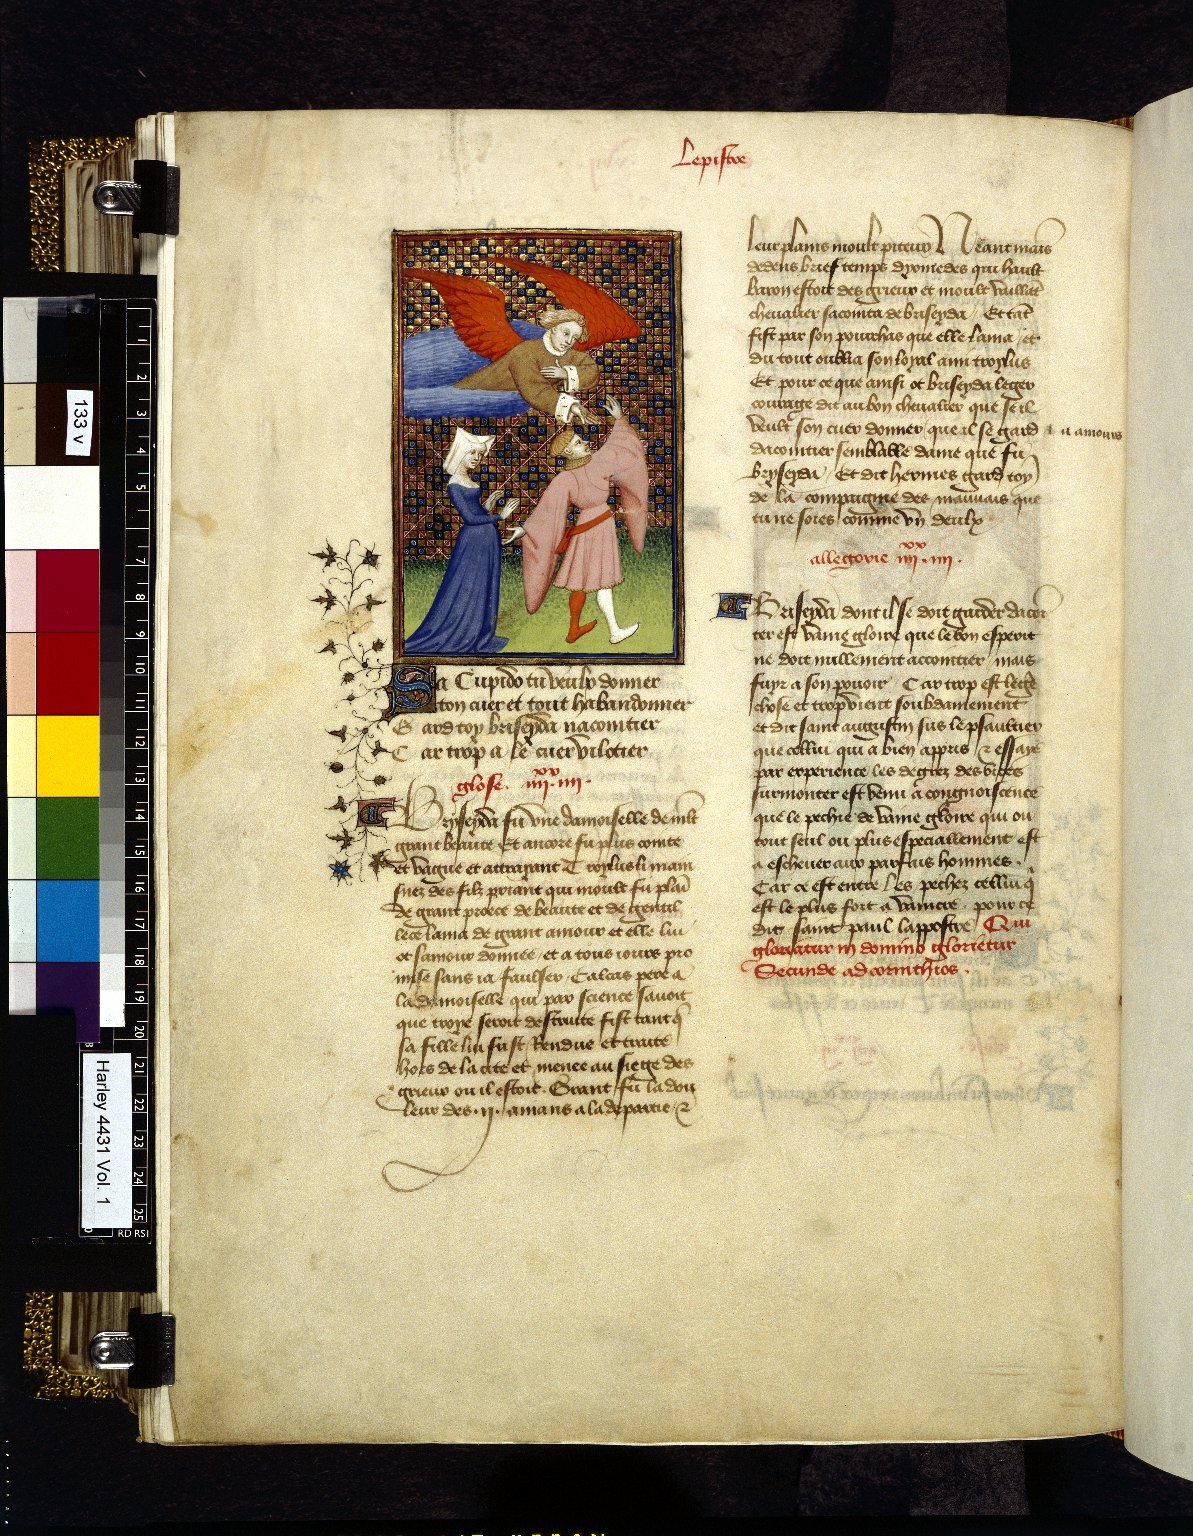 Lepistre
Sa Cupido tu veulx donner
ton cuer et tout habandonner
Gard toy briseyda nacointier
Car trop a le cuer vilotier
glose. xx iiii. iiii.
Bryseyda fu une damoiselle de mlt
grant beaute Et ancore fu plus cointe
et vague et attrayant Troylus li main
snez des filz priant qui moult fu plai
de grant proece de beaute et de gentil
lece lama de grant amour et elle lui
ot samour donnee et a tous iours pro
mise sans ia faulser. Calcas pere a
la damoiselle qui par science savoit
que troye seroit destruite fist tant q
sa fille lui fust Rendue et traitte
hors de la cite et menee au siege des
grieux ou il estoit. Grant fu la dou
leur des .ii. amans a la departie et
leur plains moult piteux Neantmains
dedens brief temps dyomedes qui hault
baron estoit des grieux et moult vaillat
chevalier sacointa de briseyda / Et tat
fist par son pourchas que elle lama / et
du tout oublia son loyal ami troylus
Et pour ce que ainsi ot briseyda leger
courage dit au bon chevalier que se il
veult son cuer donner que il se gard
damours
dacointier semblable dame que fu
bryseyda / Et dit hermes gard toy
de la compaignie des mauvais que
tu ne soies comme un deulx
allegorie xx iiii. iiii.
Briseyda dont il se doit garder dacoi
ter est vaine gloire que le bon esperit
ne doit nullement accointier mais
fuyr a son povoir. Car trop est legte
chose et trop vient soubdainement
et dit saint augustin sus le psaultier
que cellui qui a bien appris et essaye
par experience les degrez des vices
surmonter est venu a congnoiscence
que le pechie de vaine gloire qui ou
tout seul ou plus especiallement est
a eschever aux parfais hommes.
Car ce est entre les pechez cellui q
est le plus fort a vaincre. pour ce
dit saint paul lappostre Qui
gloriatur in domino glorietur
Secunde ad corinthios.
133 v
Harley 4431 Vol. 1
1
2
3
4
5
7
8
9
10
11
12
13
14
15
16
17
18
19
20
21
22
23
24
25
RD RSI